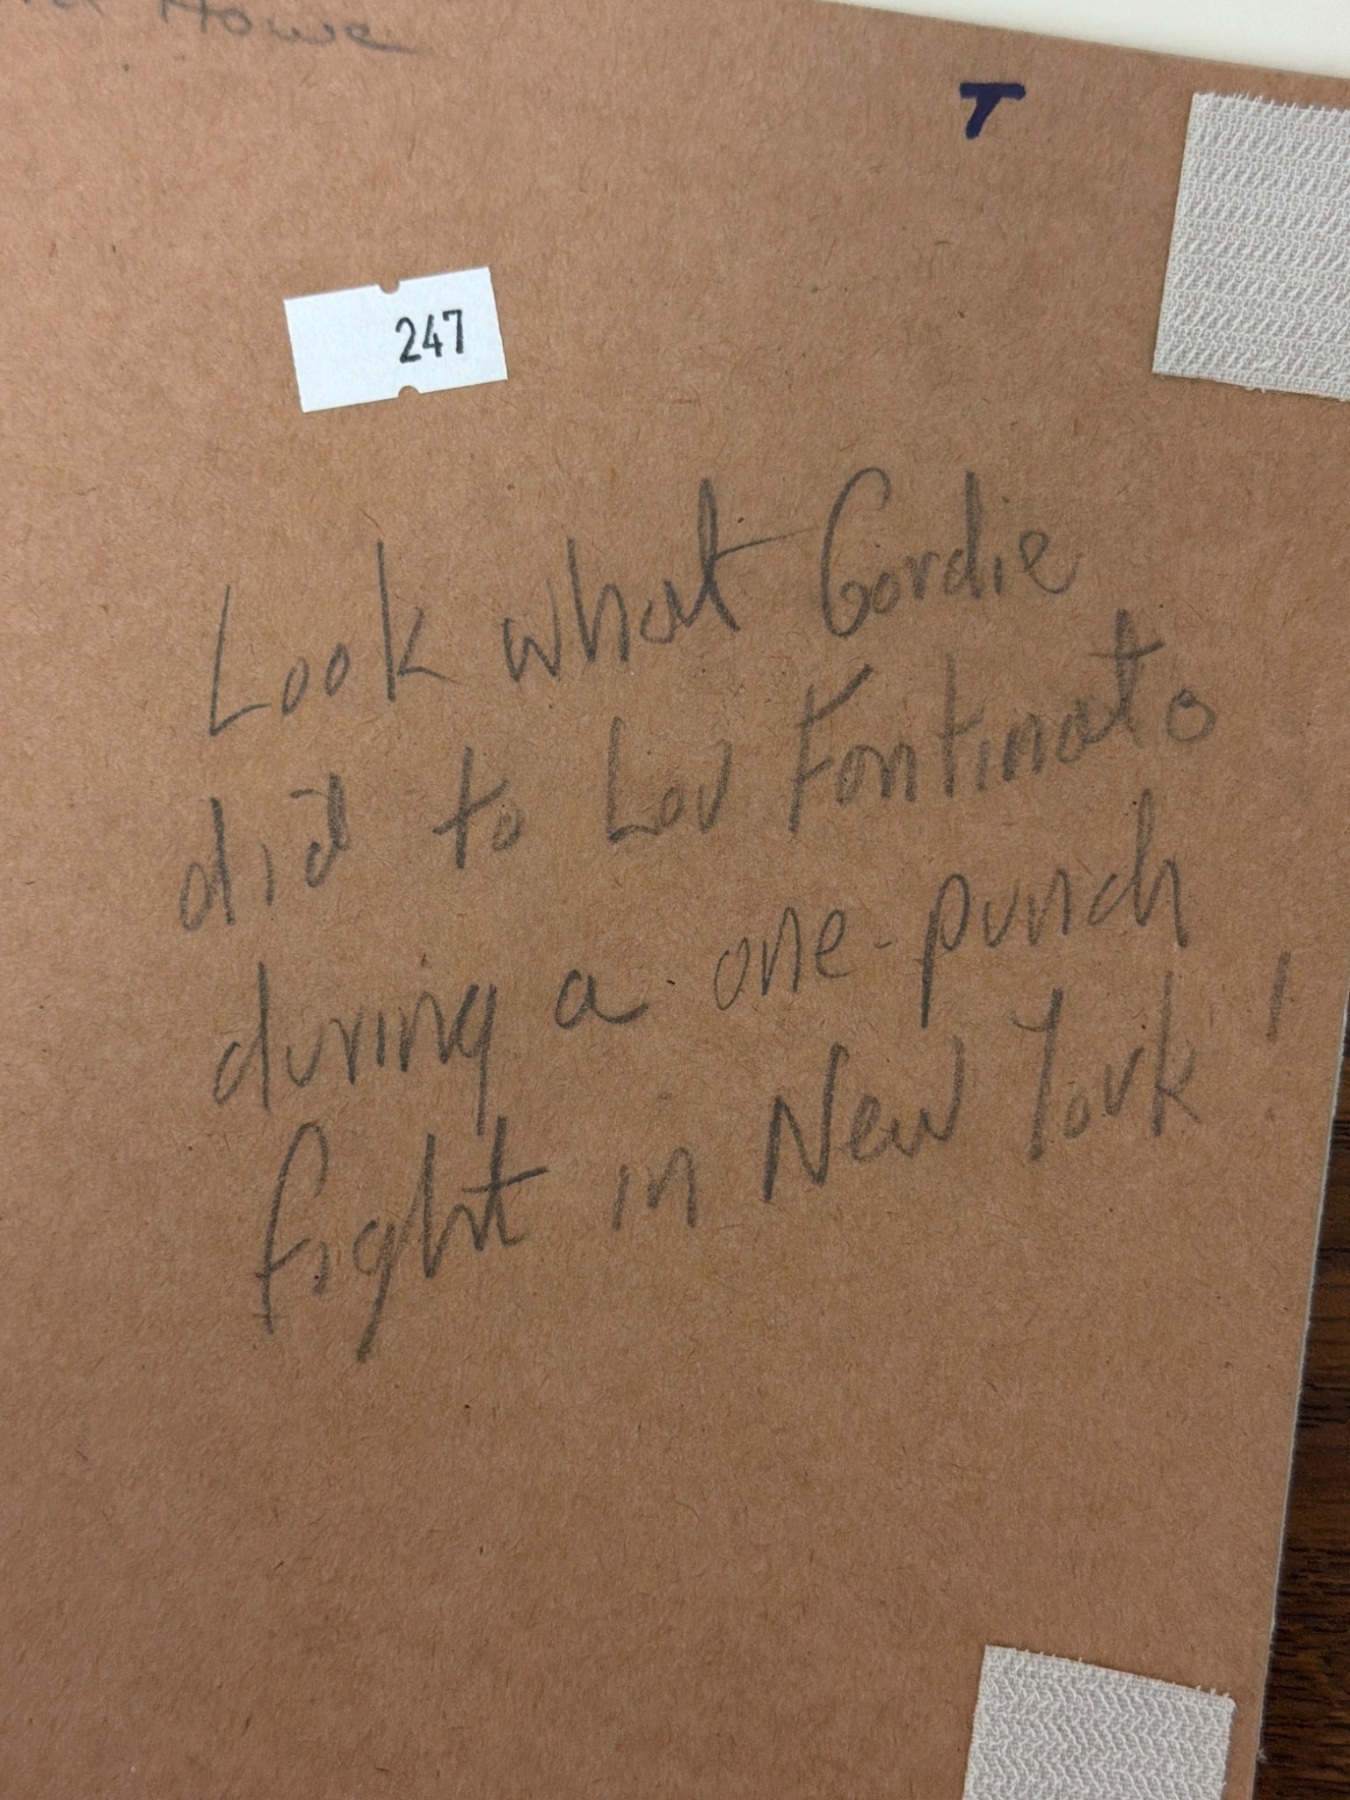 Howe
T
247
Look what Gordie
did to Lou Fontinato
during a one-punch
fight in New York !